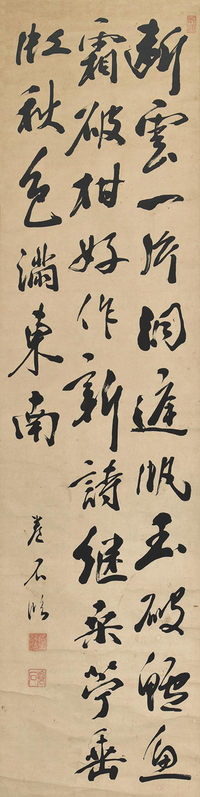 斷雲一片洞庭帆玉破鱸魚
霜破柑好作新詩継桑苧垂
虹秋色滿東南
石